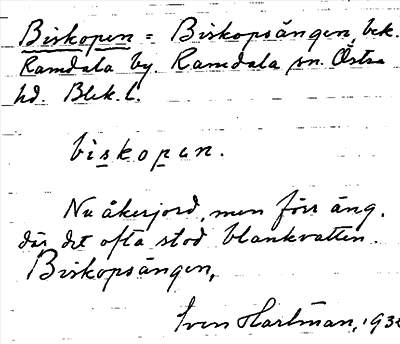 Biskopen = Biskopsängen, bek.
Ramdala by. Ramdala sn. Östra
hd. Blek. l.
biskopen.
Nu åkerjord, men förr äng,
där det ofta stod blankvatten.
Biskopsängen,
Sven Hartman,